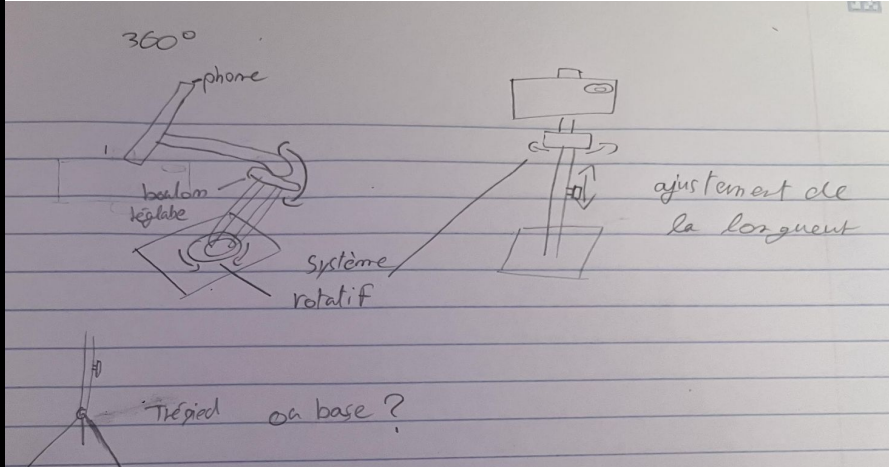 360°
phone
boulon
réglabe
Système
rotatif
ajustement de
la longueur
Trépied ou base ?